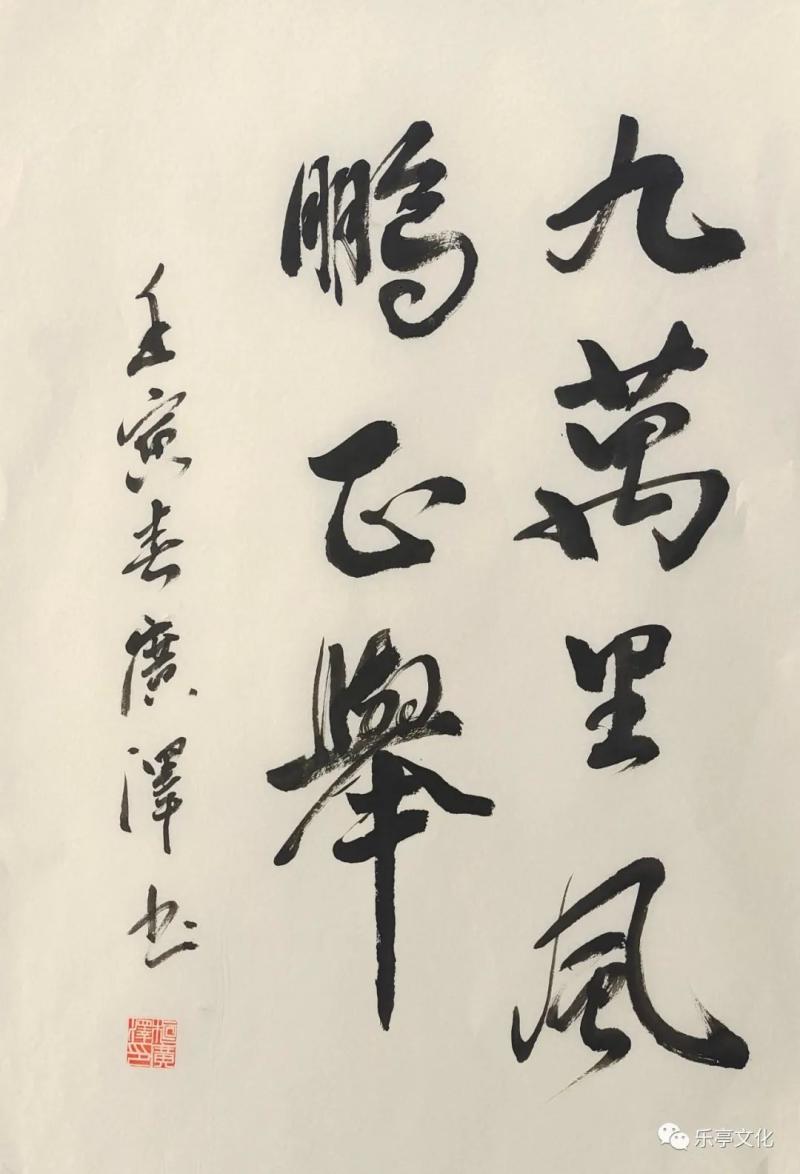 九萬里風
鵬正舉
壬寅春廣澤书
桓廣澤印
乐亭文化